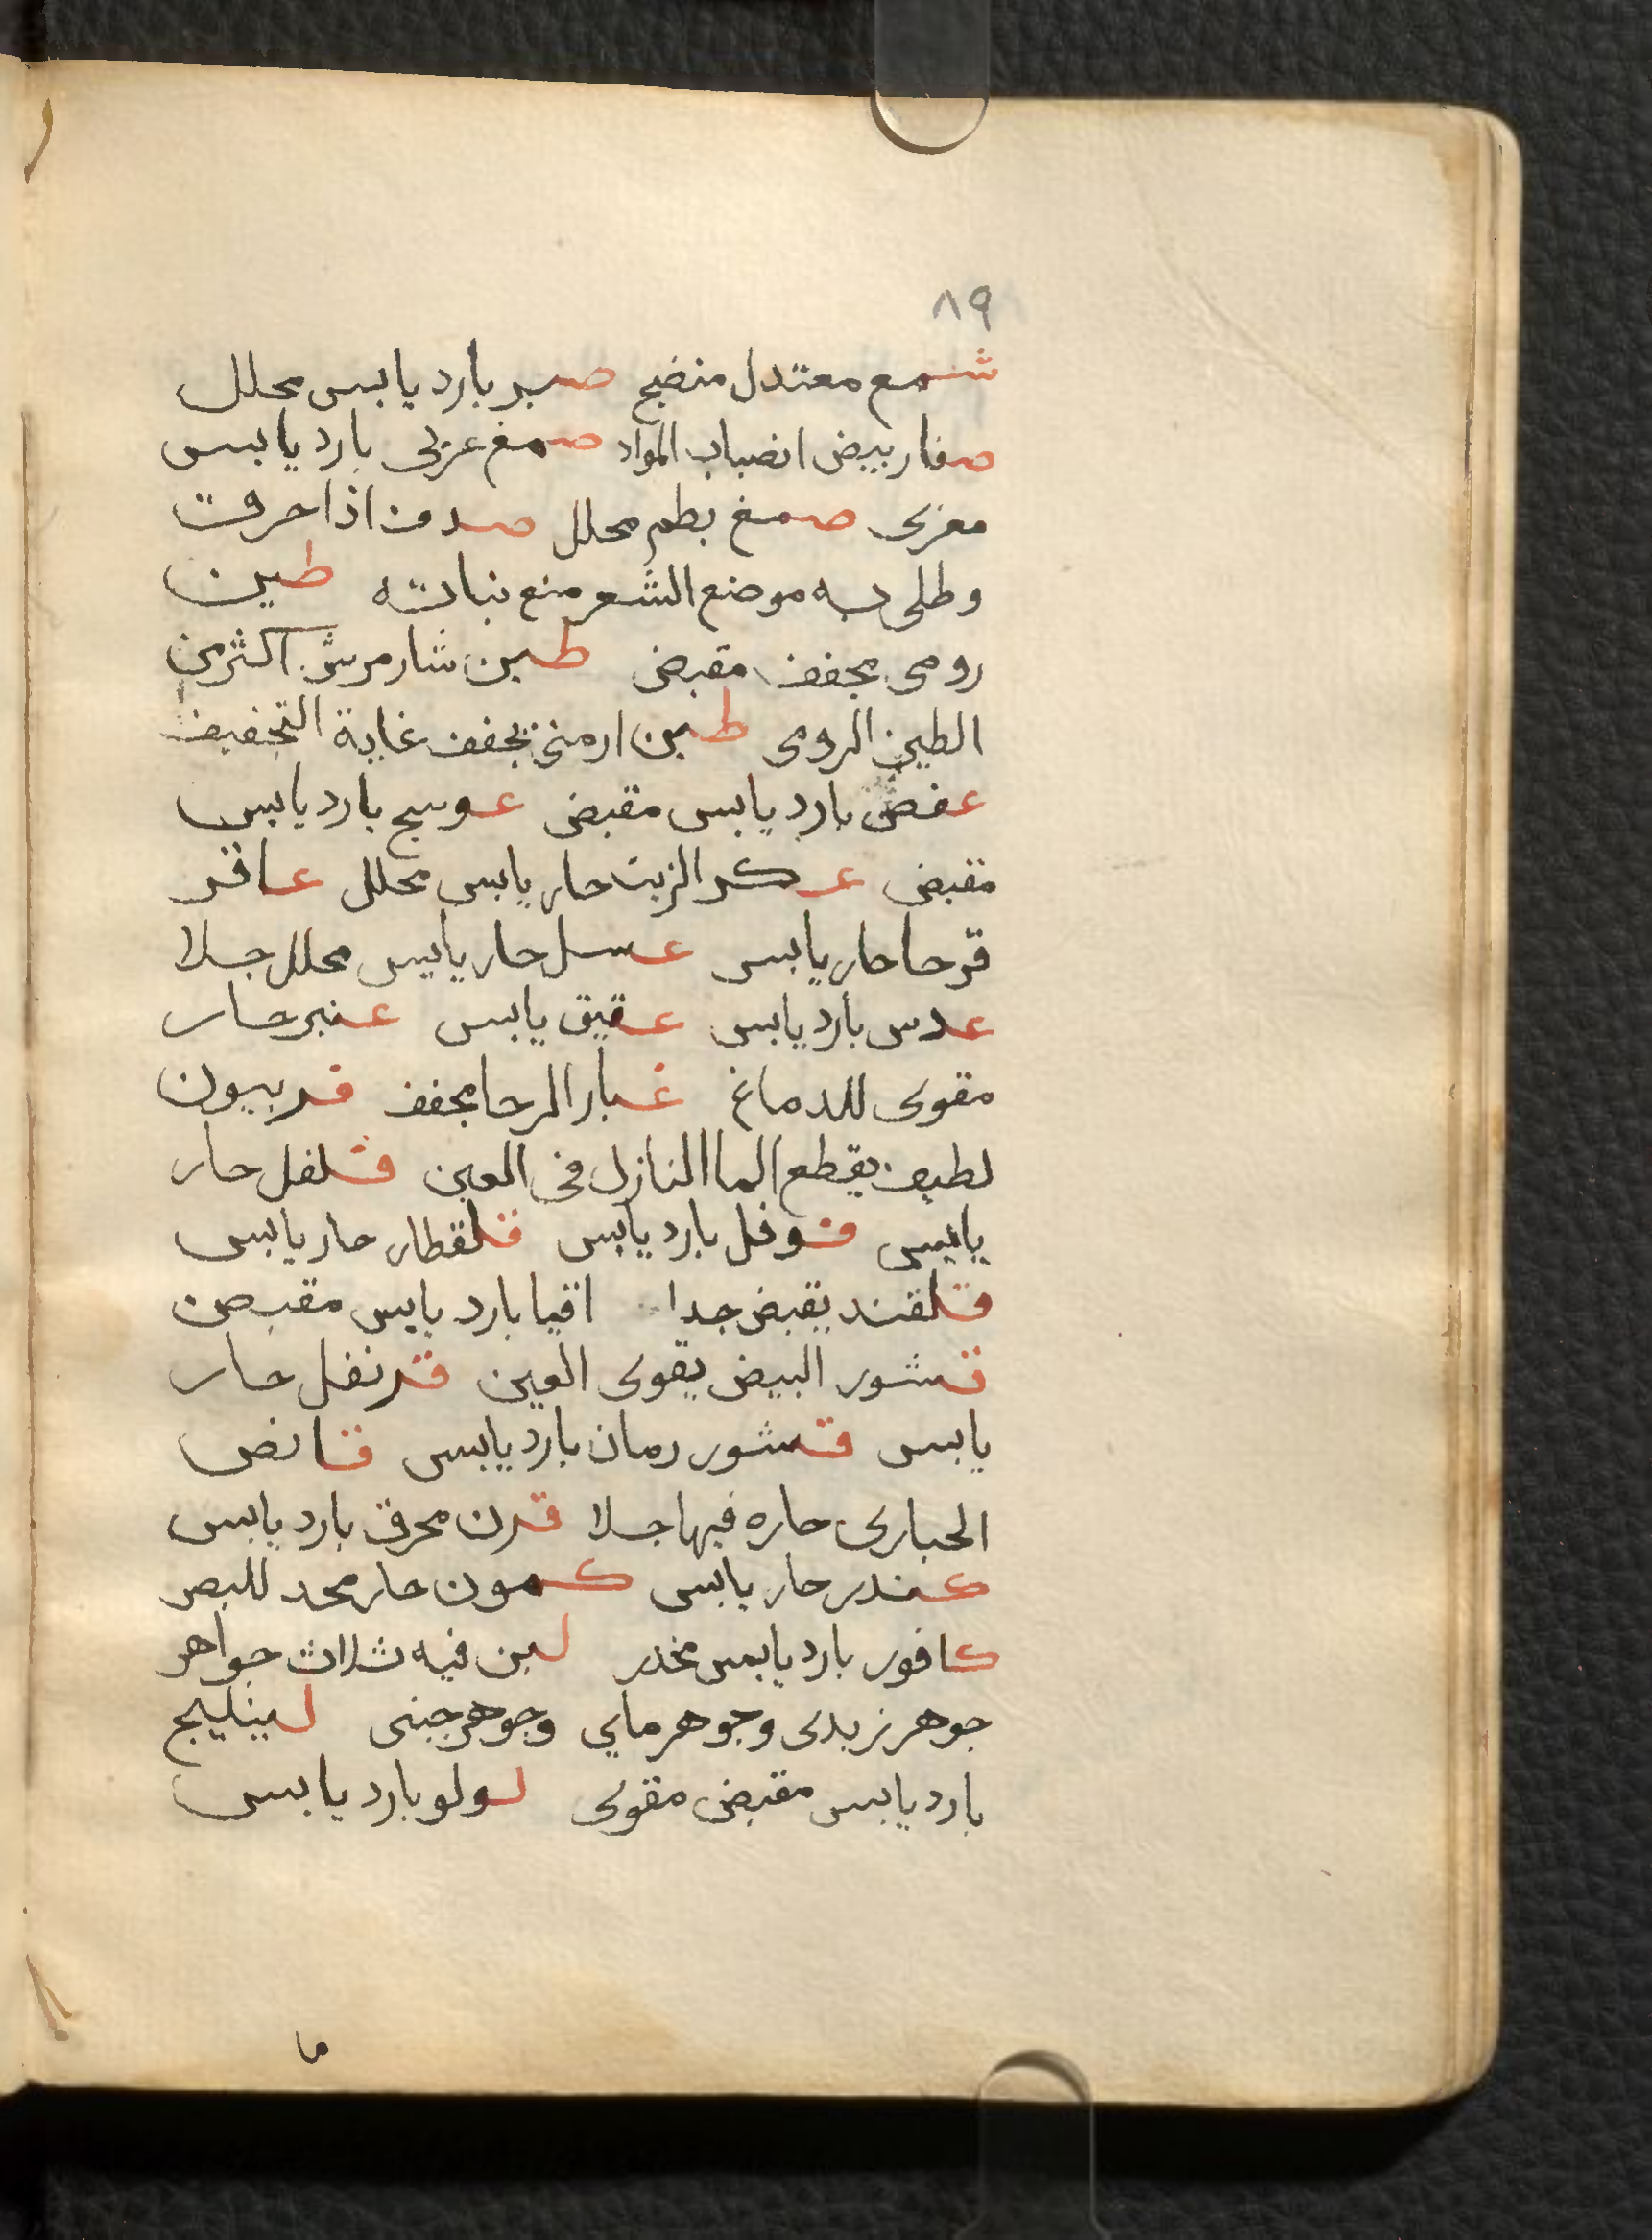 ٨٩
شمع معتدل منضج صبر بارد يابس محلل
صفار بيض انصباب المواد صمغ عربي بارد يابس
مغرى صمغ بطم محلل صدف اذا حرقت
وطلى به موضع الشعر منع نباته طين
رومى مجفف مقبض طين شار مرش اكثر من
الطين الرومى طين ارمني يجفف غاية التجفيف
عفص بارد يابس مقبض عوسج بارد يابس
مقبض عكر الزيت حار يابس محلل عاقر
قرحا حار يابس عسل حار يابس محلل جلا
عدس بارد يابس عقيق يابس عنبر حار
مقوى للدماغ غبار الرحا مجفف فربيون
لطيف يقطع الما النازل في العين فلفل حار
يابس فوفل بارد يابس قلقطار حار يابس
قلقند يقبض جدا اقيا بارد يابس مقبض
قشور البيض يقوى العين قرنفل حار
يابس قشور رمان بارد يابس قانص
الحبارى حاره فيها جلا قرن محرق بارد يابس
كندر حار يابس كمون حار محد للبصر
كافور بارد يابس مخدر لبن فيه ثلاث جواهر
جوهر زبدى وجوهر مايي وجوهر جبنى لينليج
بارد يابس مقبض مقوى لولو بارد يابس
ما